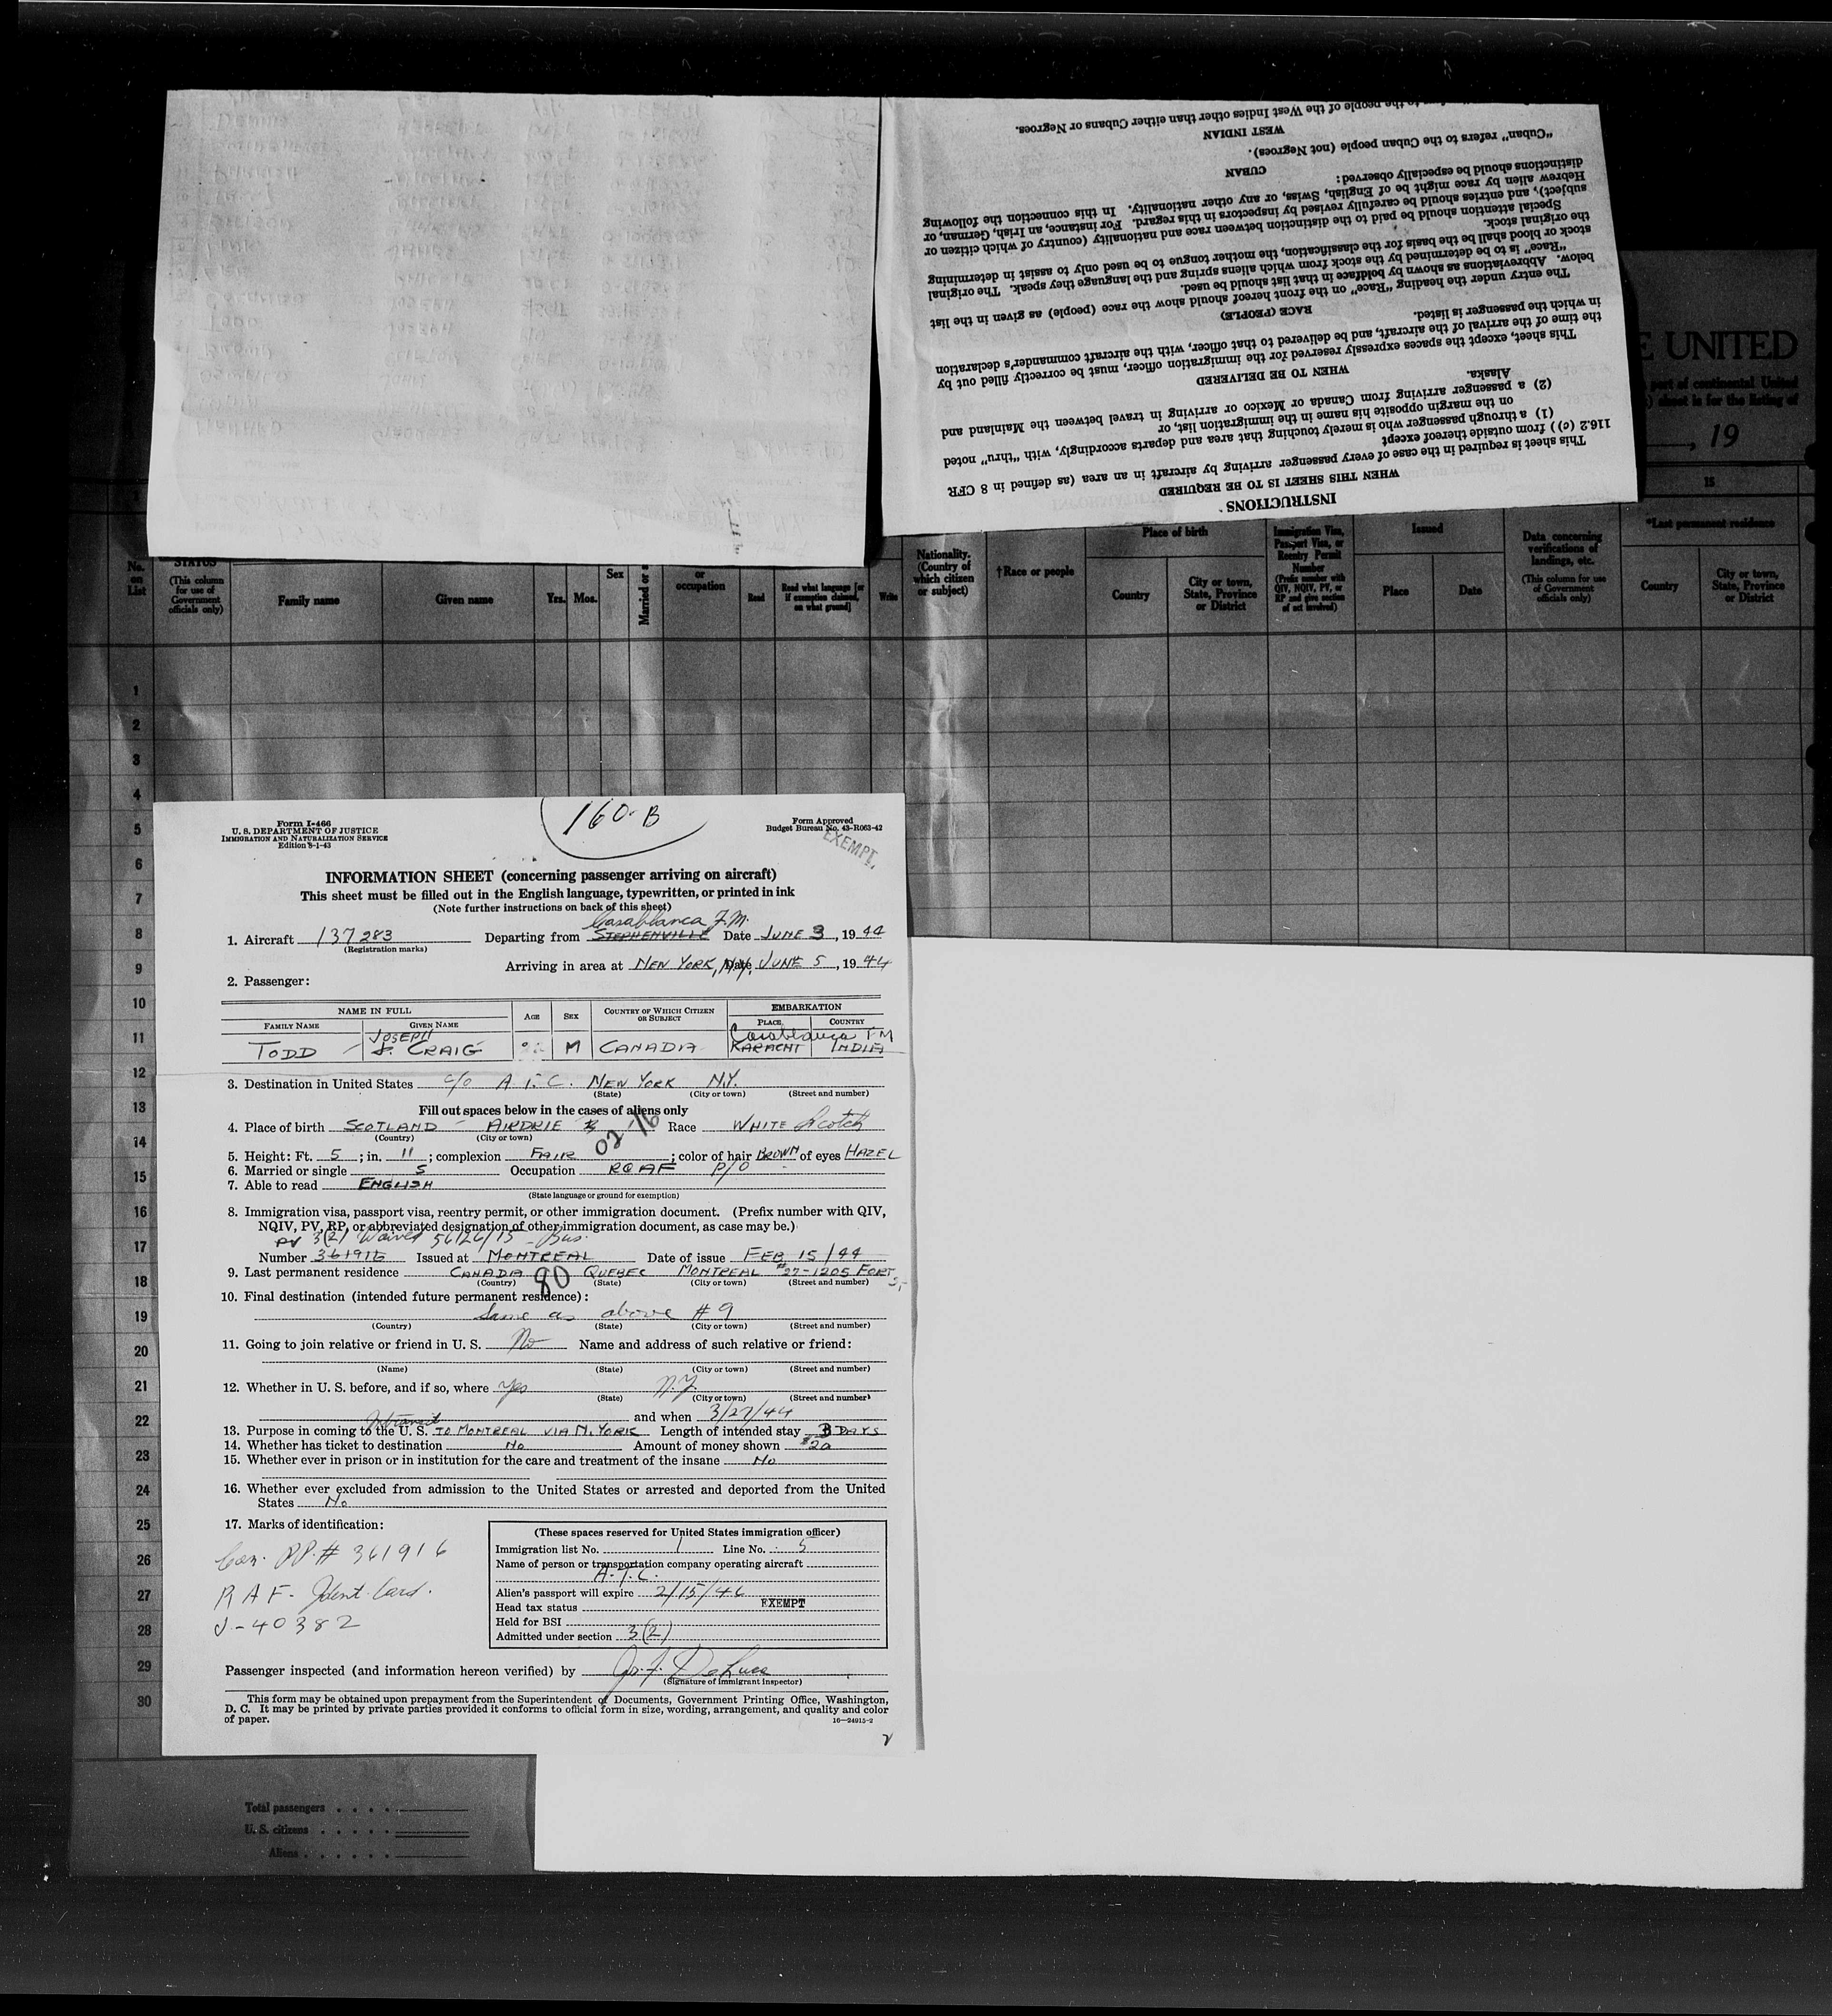 to the people of the West Indies other than either Cubans or Negroes.
WEST INDIAN
"Cuban" refers to the Cuban people (not Negroes).
CUBAN
distinctions should be especially observed:
Hebrew alien by race might be of English, Swiss, or any other nationality. In this connection the following
subject), and entries should be carefully revised by inspectors in this regard. For instance, an Irish, German, or
Special attention should be paid to the distinction between race and nationality (country of which citizen or
the original stock.
stock or blood shall be the basis for the classification, the mother tongue to be used only to assist in determining
"Race" is to be determined by the stock from which aliens spring and the language they speak. The original
below. Abbreviations as shown by boldface in that list should be used.
The entry under the heading "Race" on the front hereof should show the race (people) as given in the list
RACE (PEOPLE)
in which the passenger is listed.
the time of the arrival of the aircraft, and be delivered to that officer, with the aircraft commander's declaration
This sheet, except the spaces expressly reserved for the immigration officer, must be correctly filled out by
WHEN TO BE DELIVERED
Alaska.
(2) a passenger arriving from Canada or Mexico or arriving in travel between the Mainland and
on the margin opposite his name in the immigration list, or
(1) a through passenger who is merely touching that area and departs accordingly, with "thru" noted
116.2 (c)) from outside thereof except
This sheet is required in the case of every passenger arriving by aircraft in an area (as defined in 8 CFR
WHEN THIS SHEET IS TO BE REQUIRED
INSTRUCTIONS
E UNITED
part of continental United
sheet is for the listing of
, 19
15
No. on List
STATUS
(This column for use of Government officials only)
Family name
Given name
Yrs.
Mos.
Sex
Married or s
or occupation
Read
Read what language [or if exemption claimed, on what ground]
Write
Nationality. (Country of which citizen or subject)
†Race or people
Place of birth
Country
City or town, State, Province or District
Immigration Visa, Passport Visa, or Reentry Permit Number
(Prefix number with QIV, NQIV, PV, or RP and give section of act involved)
Issued
Place
Date
Data concerning verifications of landings, etc.
(This column for use of Government officials only)
*Last permanent residence
Country
City or town, State, Province or District
1
2
3
4
5
6
7
8
9
10
11
12
13
14
15
16
17
18
19
20
21
22
23
24
25
26
27
28
29
30
160-B
Form I-466
U. S. DEPARTMENT OF JUSTICE
IMMIGRATION AND NATURALIZATION SERVICE
Edition 8-1-43
Form Approved
Budget Bureau No. 43-R063-42
EXEMPT.
INFORMATION SHEET (concerning passenger arriving on aircraft)
This sheet must be filled out in the English language, typewritten, or printed in ink
(Note further instructions on back of this sheet)
Casablanca F.M.
1. Aircraft 137283 Departing from STEPHENVILLE Date JUNE 3, 1944
(Registration marks)
Arriving in area at NEW YORK, N.Y. Date JUNE 5, 1944
2. Passenger:
NAME IN FULL
AGE
SEX
COUNTRY OF WHICH CITIZEN OR SUBJECT
EMBARKATION
FAMILY NAME
GIVEN NAME
PLACE
COUNTRY
JOSEPH Casablanca F M
TODD J. CRAIG M CANADA KARACHI INDIA
3. Destination in United States c/o A.T.C. NEW YORK N.Y.
(State) (City or town) (Street and number)
Fill out spaces below in the cases of aliens only
02-16
4. Place of birth SCOTLAND - AIRDRIE Race WHITE Scotch
(Country) (City or town)
5. Height: Ft. 5; in. 11; complexion FAIR; color of hair BROWN of eyes HAZEL
6. Married or single S Occupation RCAF P/O
7. Able to read ENGLISH
(State language or ground for exemption)
8. Immigration visa, passport visa, reentry permit, or other immigration document. (Prefix number with QIV,
NQIV, PV, RP, or abbreviated designation of other immigration document, as case may be.)
PV 3(2) Waived 56126/15 - Bus.
Number 361916 Issued at MONTREAL Date of issue FEB 15/44
9. Last permanent residence CANADA QUEBEC MONTREAL #27-1205 FORT
(Country) 80 (State) (City or town) (Street and number)
10. Final destination (intended future permanent residence):
Same as above #9
(Country) (State) (City or town) (Street and number)
11. Going to join relative or friend in U. S. No Name and address of such relative or friend:
(Name) (State) (City or town) (Street and number)
12. Whether in U. S. before, and if so, where yes N.Y.
(State) (City or town) (Street and number)
and when 3/27/44
Intransit
13. Purpose in coming to the U. S. TO MONTREAL VIA N. YORK Length of intended stay 3 DAYS
14. Whether has ticket to destination No Amount of money shown $20
15. Whether ever in prison or in institution for the care and treatment of the insane No
16. Whether ever excluded from admission to the United States or arrested and deported from the United
States No
17. Marks of identification:
Can. PP.# 361916
RAF - Ident. Card.
J-40382
(These spaces reserved for United States immigration officer)
Immigration list No. 1 Line No. 5
Name of person or transportation company operating aircraft
A.T.C.
Alien's passport will expire 2/15/46
Head tax status EXEMPT
Held for BSI
Admitted under section 3(2)
Passenger inspected (and information hereon verified) by
(Signature of immigrant inspector)
This form may be obtained upon prepayment from the Superintendent of Documents, Government Printing Office, Washington,
D. C. It may be printed by private parties provided it conforms to official form in size, wording, arrangement, and quality and color
of paper.
16—24915-2
Total passengers
U. S. citizens
Aliens